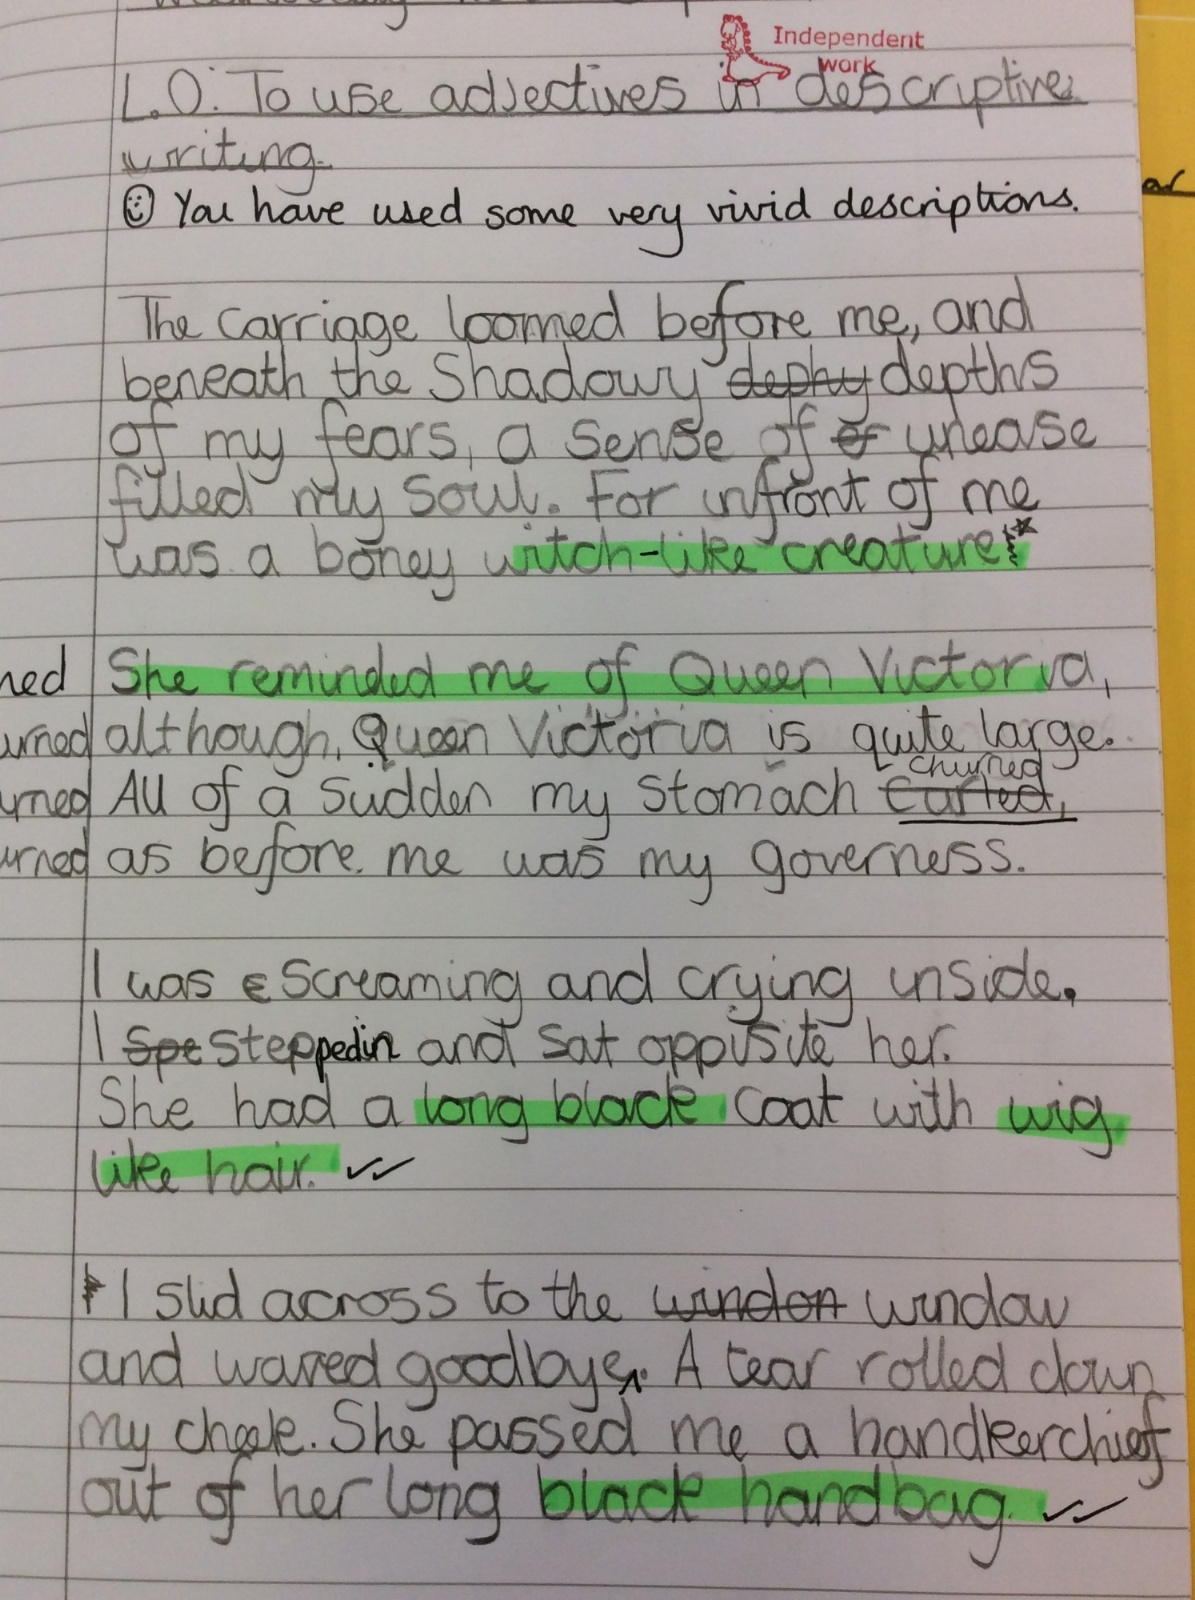 Independent
work
L.O. To use adjectives in descriptive
writing.
You have used some very vivid descriptions.
The carriage loomed before me, and
beneath the Shadowy dephy depths
of my fears, a sense of of unease
filled my soul. For infront of me
was a boney witch-like creature
ned She reminded me of Queen Victoria,
urned although, Queen Victoria is quite large.
churned
urned All of a sudden my stomach
urned as before me was my governess.
I was screaming and crying inside.
I Spe stepped in and sat oppisite her.
She had a long black coat with wig
like hair.
I slid across to the windon window
and waved goodbye. A tear rolled down
my cheek. She passed me a handkerchief
out of her long black handbag.